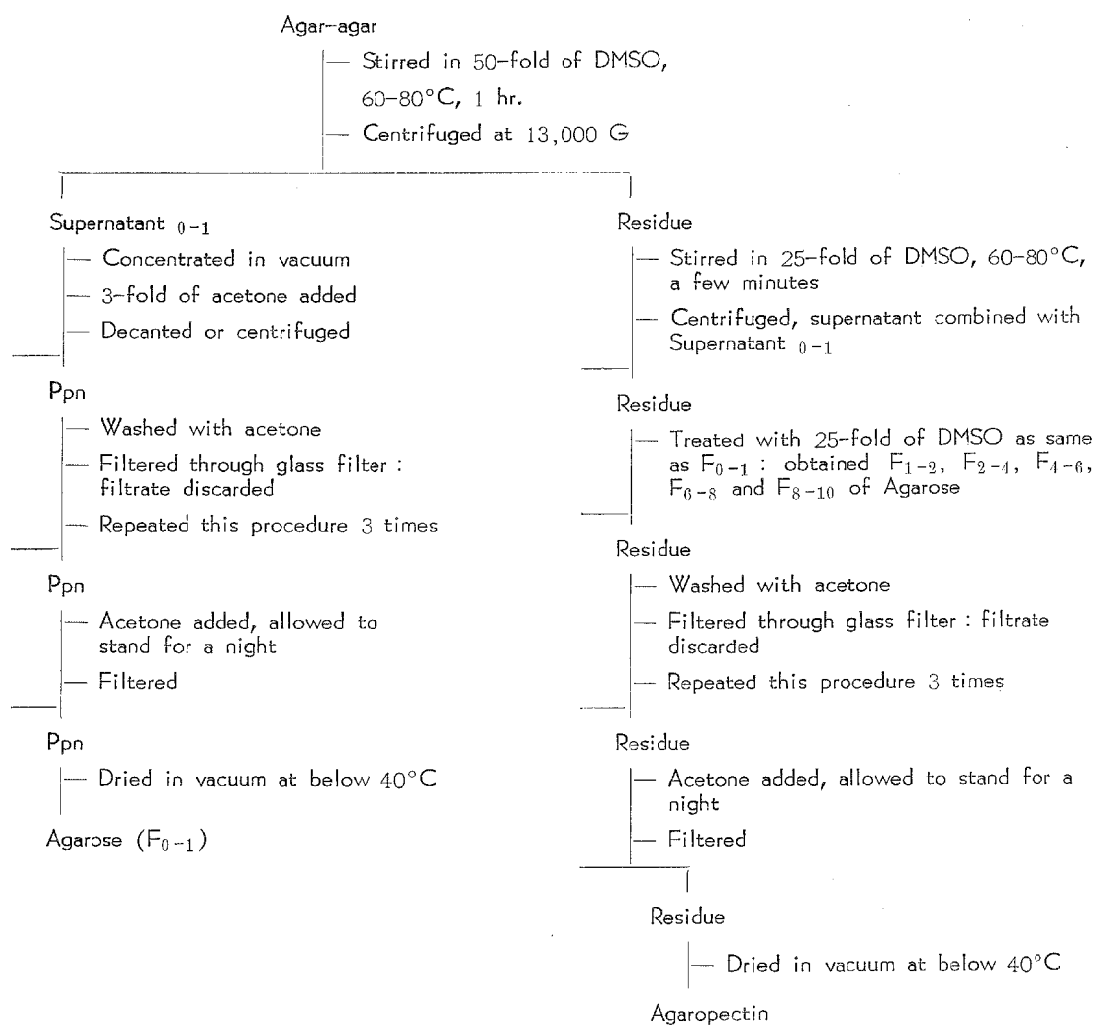 Agar-agar
— Stirred in 50-fold of DMSO,
60-80°C, 1 hr.
— Centrifuged at 13,000 G
Supernatant 0-1
— Concentrated in vacuum
— 3-fold of acetone added
— Decanted or centrifuged
Ppn
— Washed with acetone
— Filtered through glass filter :
filtrate discarded
— Repeated this procedure 3 times
Ppn
— Acetone added, allowed to
stand for a night
— Filtered
Ppn
— Dried in vacuum at below 40°C
Agarose (F0-1)
Residue
— Stirred in 25-fold of DMSO, 60-80°C,
a few minutes
— Centrifuged, supernatant combined with
Supernatant 0-1
Residue
— Treated with 25-fold of DMSO as same
as F0-1 : obtained F1-2, F2-4, F4-6,
F6-8 and F8-10 of Agarose
Residue
— Washed with acetone
— Filtered through glass filter : filtrate
discarded
— Repeated this procedure 3 times
Residue
— Acetone added, allowed to stand for a
night
— Filtered
Residue
— Dried in vacuum at below 40°C
Agaropectin